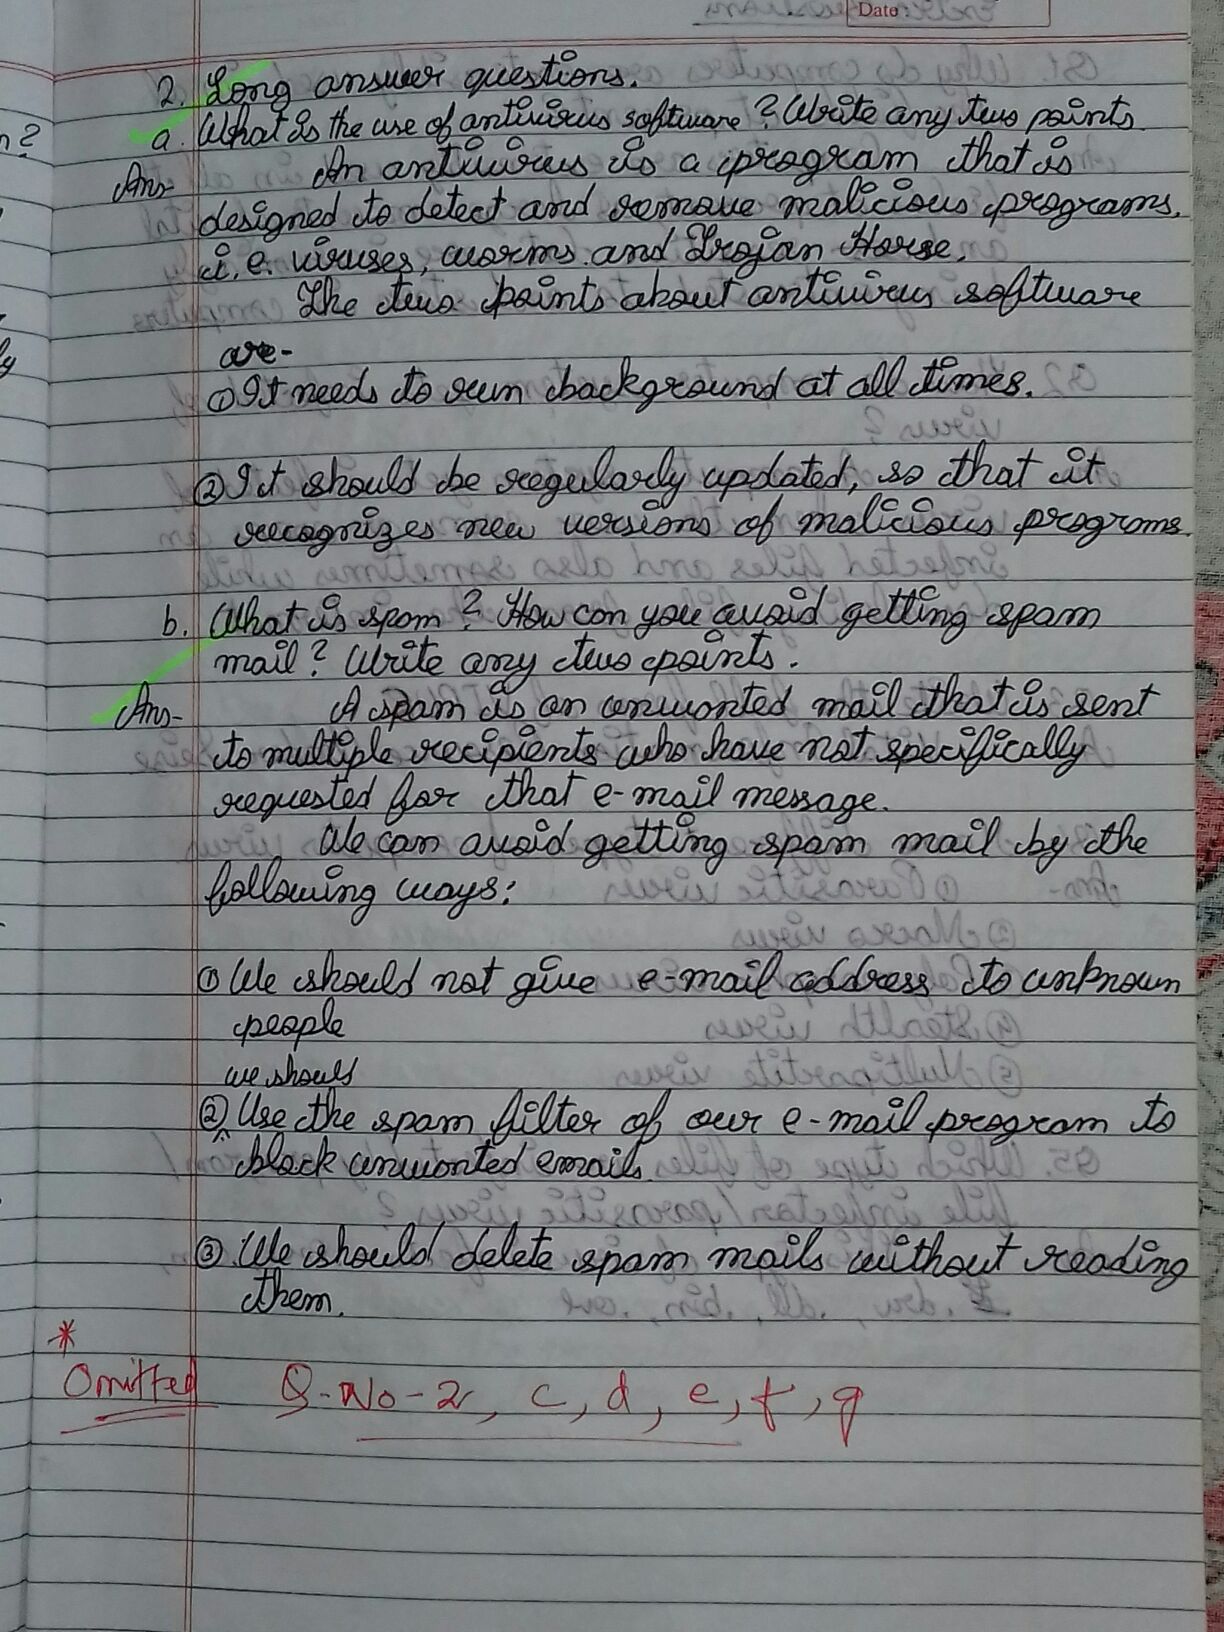 Date
2. Long answer questions.
a. What is the use of antivirus software? Write any two points.
Ans- An antivirus is a program that is
designed to detect and remove malicious programs,
i.e. viruses, worms and Trojan Horse.
The two points about antivirus software
are-
① It needs to run background at all times.
② It should be regularly updated, so that it
recognizes new versions of malicious programs.
b. What is spam? How can you avoid getting spam
mail? Write any two points.
Ans- A spam is an unwanted mail that is sent
to multiple recipients who have not specifically
requested for that e-mail message.
We can avoid getting spam mail by the
following ways:
① We should not give e-mail address to unknown
people
we should
② Use the spam filter of our e-mail program to
block unwanted emails.
③ We should delete spam mails without reading
them.
*
Omitted Q-No-2, c, d, e, f, g